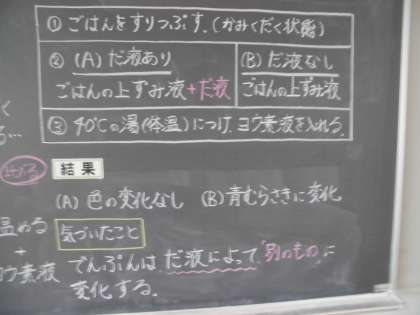 ① ごはんをすりつぶす.(かみくだく状態)
② (A) だ液あり
ごはんの上ずみ液+だ液
(B) だ液なし
ごはんの上ずみ液
③ 40℃の湯(体温)につけ、ヨウ素液を入れる.
結果
(A) 色の変化なし (B) 青むらさきに変化
気づいたこと
でんぷんは だ液によって "別のもの"に
変化する.
く
る…
温める
+
ヨウ素液